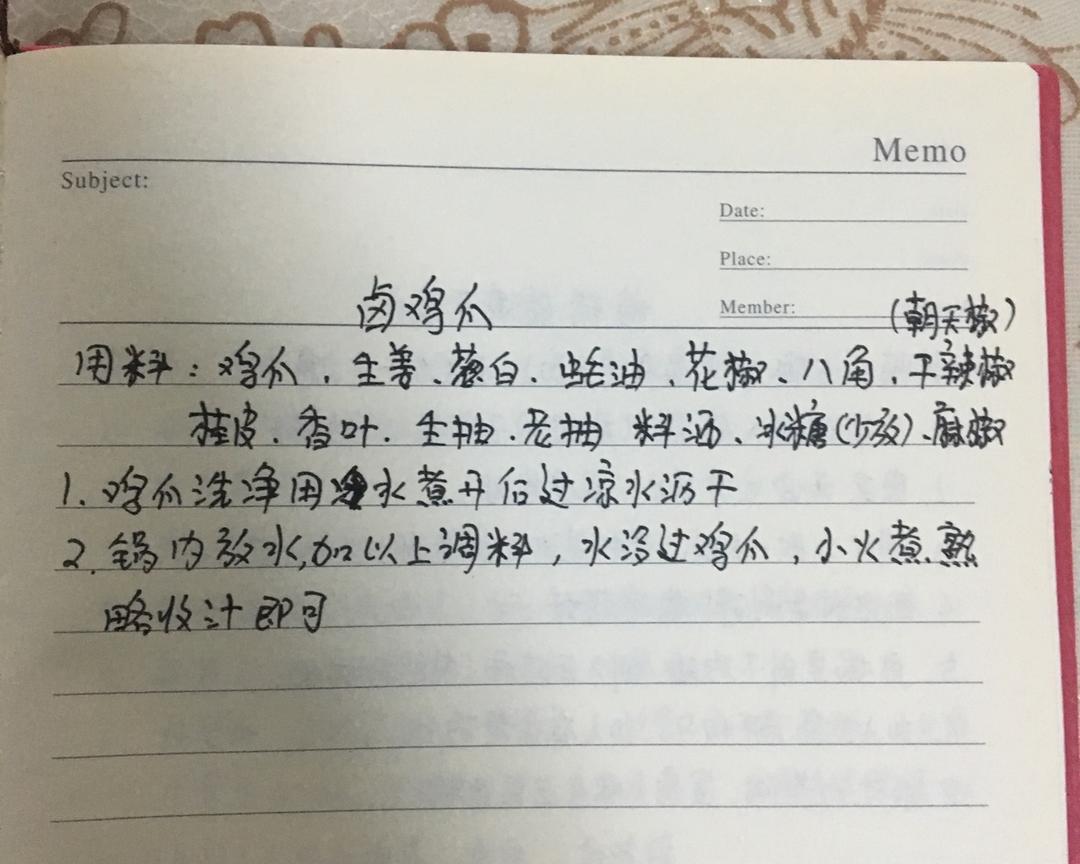 Memo
Subject:
Date:
Place:
Member:
卤鸡爪
(朝天椒)
用料：鸡爪、生姜、葱白、蚝油、花椒、八角、干辣椒
桂皮、香叶、生抽、老抽 料酒、冰糖(少放)、麻椒
1. 鸡爪洗净用水煮开后过凉水沥干
2. 锅内放水,加以上调料，水没过鸡爪，小火煮熟
略收汁即可